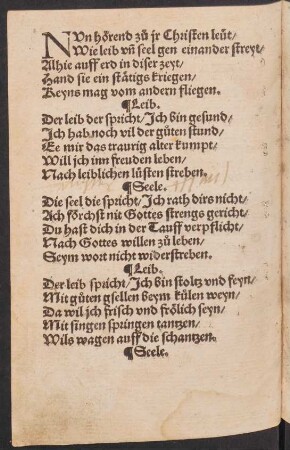 NUn hörend zů jr Christen leüt/
Wie leib vñ seel gen einander streyt/
Alhie auff erd in diser zeyt/
Hand sie ein stätigs kriegen/
Keyns mag vom andern fliegen.
¶Leib.
Der leib der spricht/Ich bin gesund/
Ich hab noch vil der gůten stund/
Ee mir das traurig alter kumpt/
Will ich inn freuden leben/
Nach leiblichen lüsten streben.
¶Seele.
Die seel die spricht/Ich rath dirs nicht/
Ach förchst nit Gottes strengs gericht/
Du hast dich in der Tauff verpflicht/
Nach Gottes willen zů leben/
Seym wort nicht widerstreben.
¶Leib.
Der leib spricht/Ich bin stoltz vnd feyn/
Mit gůten gsellen beym külen weyn/
Da wil ich frisch vnd frölich seyn/
Mit singen springen tantzen/
Wils wagen auff die schantzen.
¶Seele.